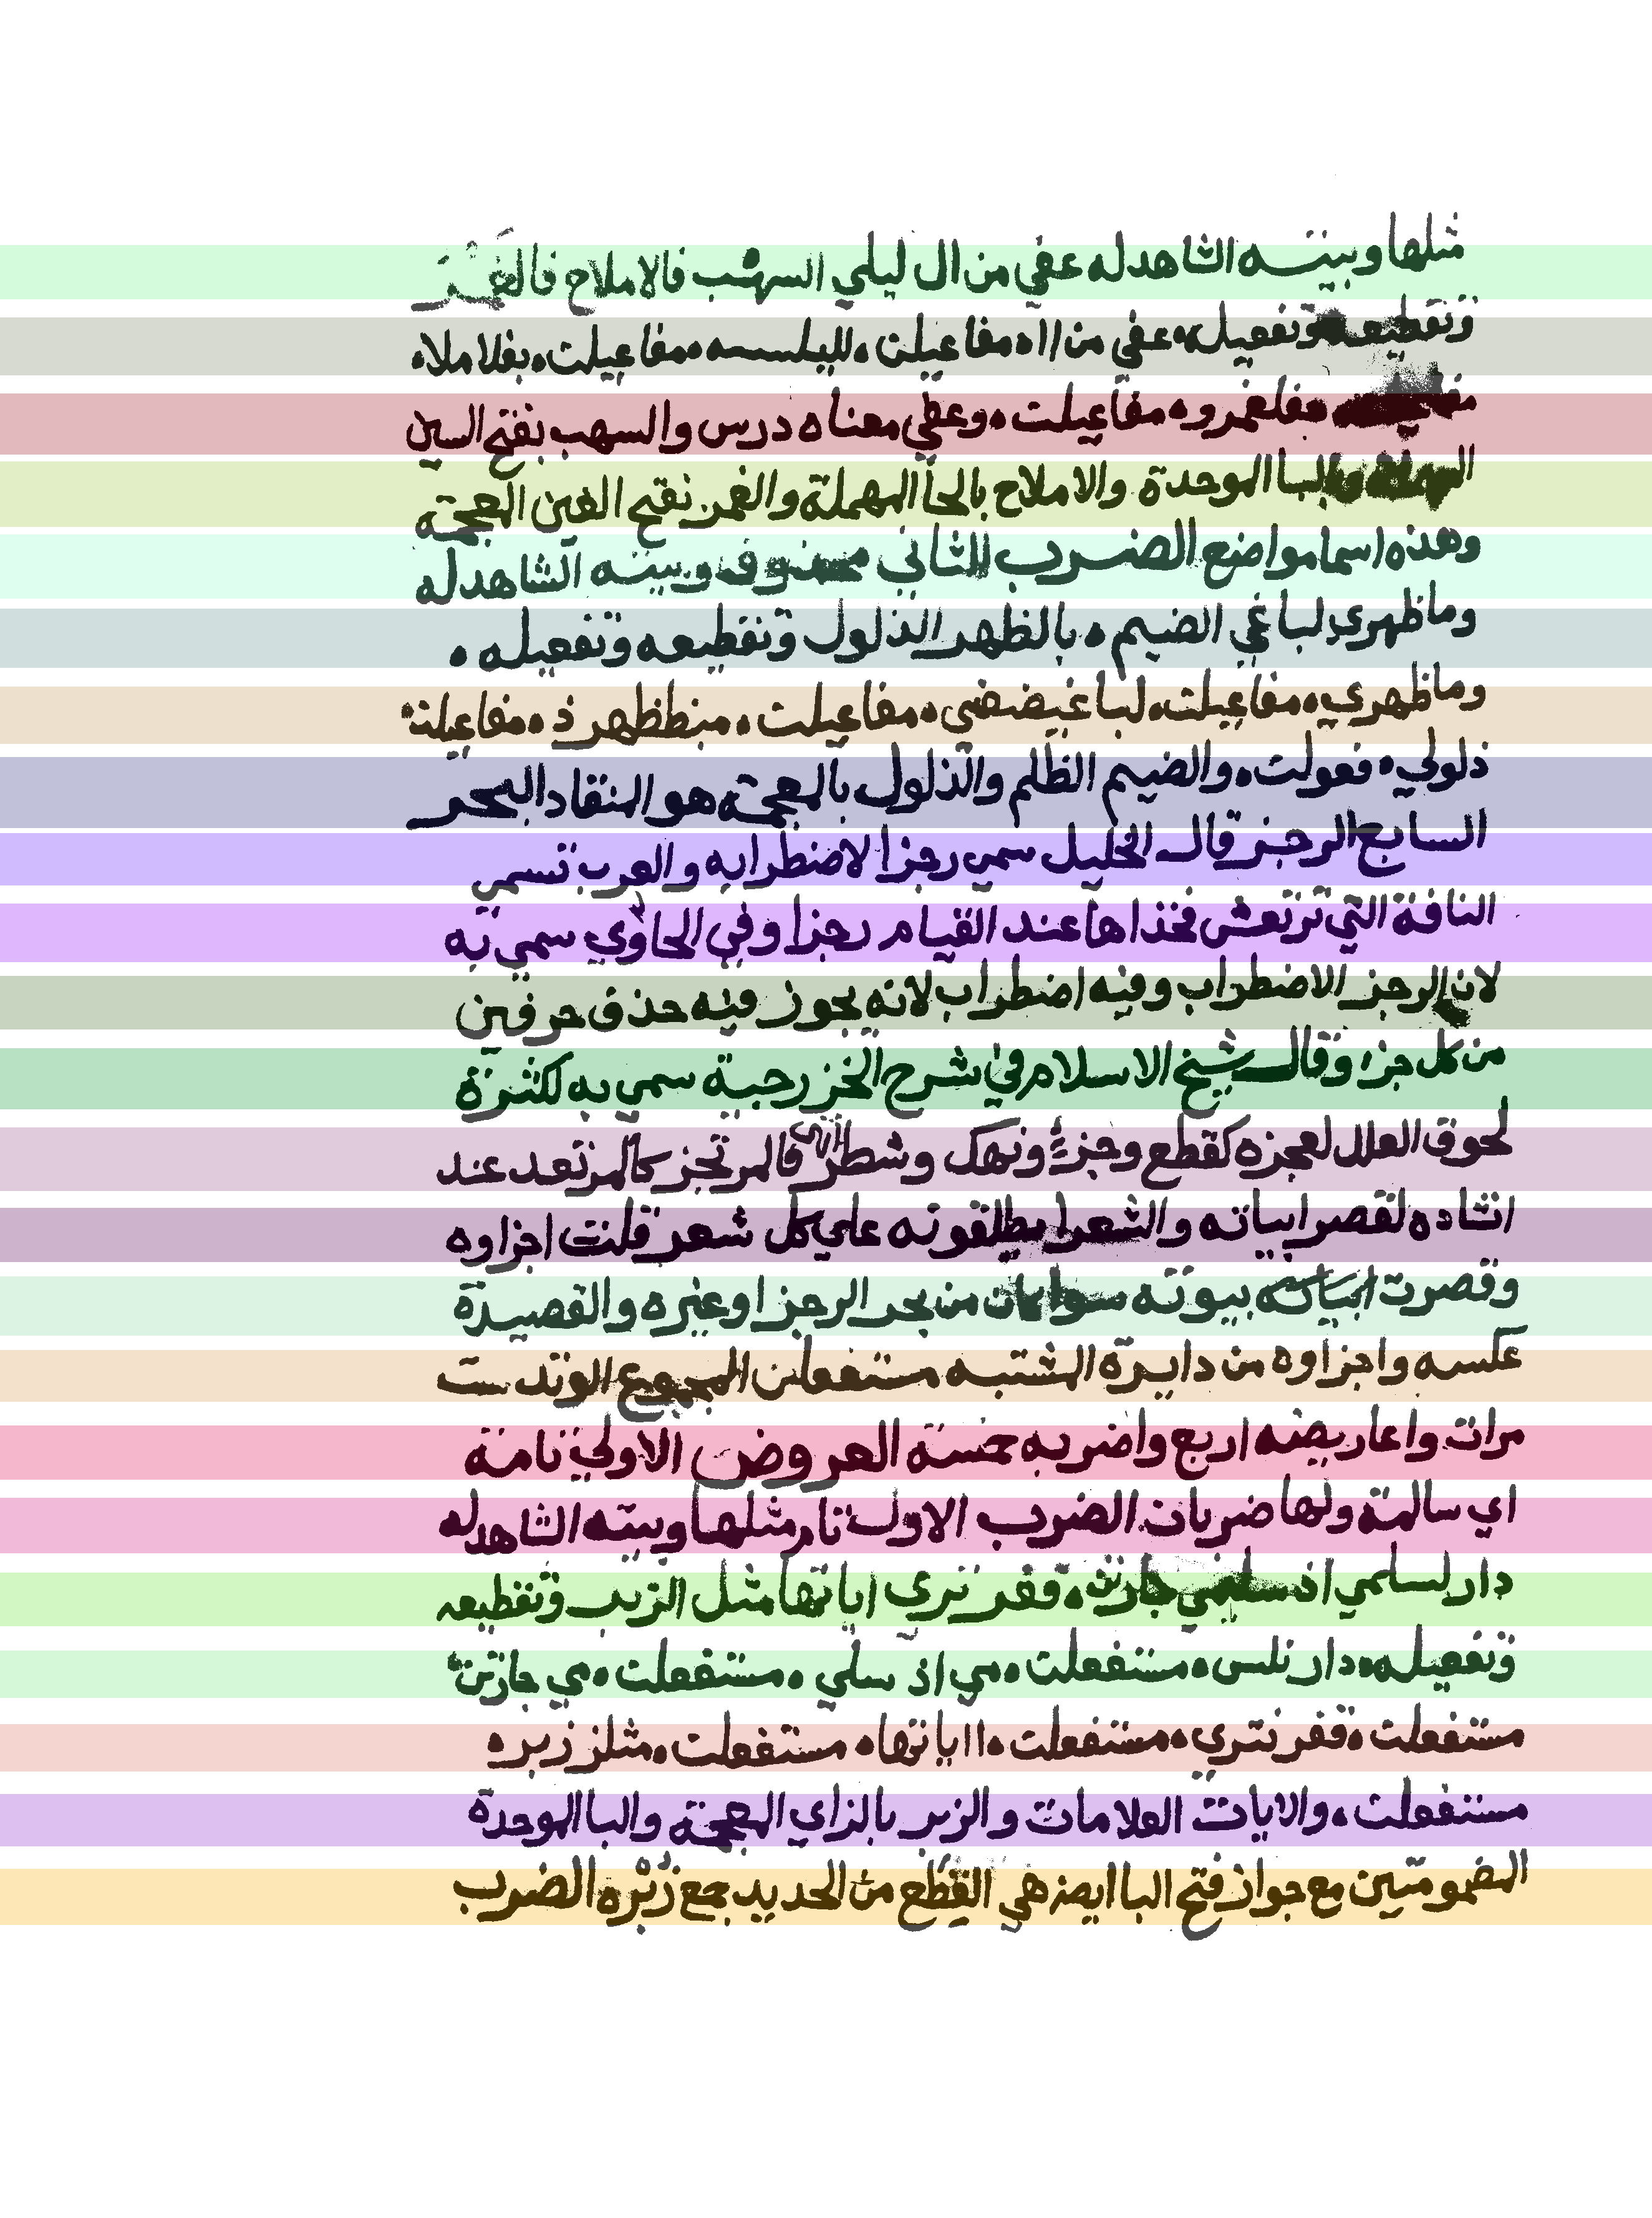 مثلها وبيته الشاهد له عفي من ال ليلي السهب فالاملاح فالغمر
وتقطيعه وتفعيله ه عفي من اا ه مفاعيلن ه لليلسسه ه مفاعيلن ه بفلاملا ه
مفاعيلن حفلغمرو ه مفاعيلن ه وعفي معناه درس والسهب بفتح السين
المهملة والبا الموحدة والاملاح بالحا المهملة والغمر بفتح الغين المعجمة
وهذه اسما مواضع الضرب الثاني محذوف وبيته الشاهد له
وما ظهري لباغي الضيم ه بالظهر الذلول وتقطيعه وتفعيله ه
وما ظهري ه مفاعيلن ه لباغيضضي ه مفاعيلن ه منطظهرذ ه مفاعيلن
ذلولي ه فعولن ه والضيم الظلم والذلول بالمعجمة هو المنقاد البحر
السابع الرجز قال الخليل سمي رجزا لاضطرابه والعرب تسمي
الناقة التي ترتعش فخذاها عند القيام رجزا وفي الحاوي سمي به
لان الرجز الاضطراب وفيه اضطراب لانه يجوز فيه حذف حرفين
من كل جزء وقال شيخ الاسلام في شرح الخزرجية سمي به لكثرة
لحوق العلل لعجزه كقطع وجزء ونهك وشطر فالمرتجز كالمرتعد عند
انشاده لقصر ابياته والشعرا يطلقونه علي كل شعر قلت اجزاوه
وقصرت ابياته بيوته سوا كان من بحر الرجز او غيره والقصيدة
عكسه واجزاوه من دايرة المشتبه مستفعلن المجموع الوتد ست
مرات واعاريضه اربع واضربه خمسة العروض الاولي تامة
اي سالمة ولها ضربان الضرب الاول تام مثلها وبيته الشاهد له
دار لسلمي اذ سليمي جارتن ه قفر تري اياتها مثل الزبر وتقطيعه
وتفعيله ه دارنلس ه مستفعلن ه مي اذ سلي ه مستفعلن ه مي جارتن ه
مستفعلن ه قفر نتري ه مستفعلن ه اا ياتها ه مستفعلن ه مثلززبر ه
مستفعلن ه والايات العلامات والزبر بالزاي المعجمة والبا الموحدة
المضمومتين مع جواز فتح البا ايضا هي القطع من الحديد جمع زبره الضرب